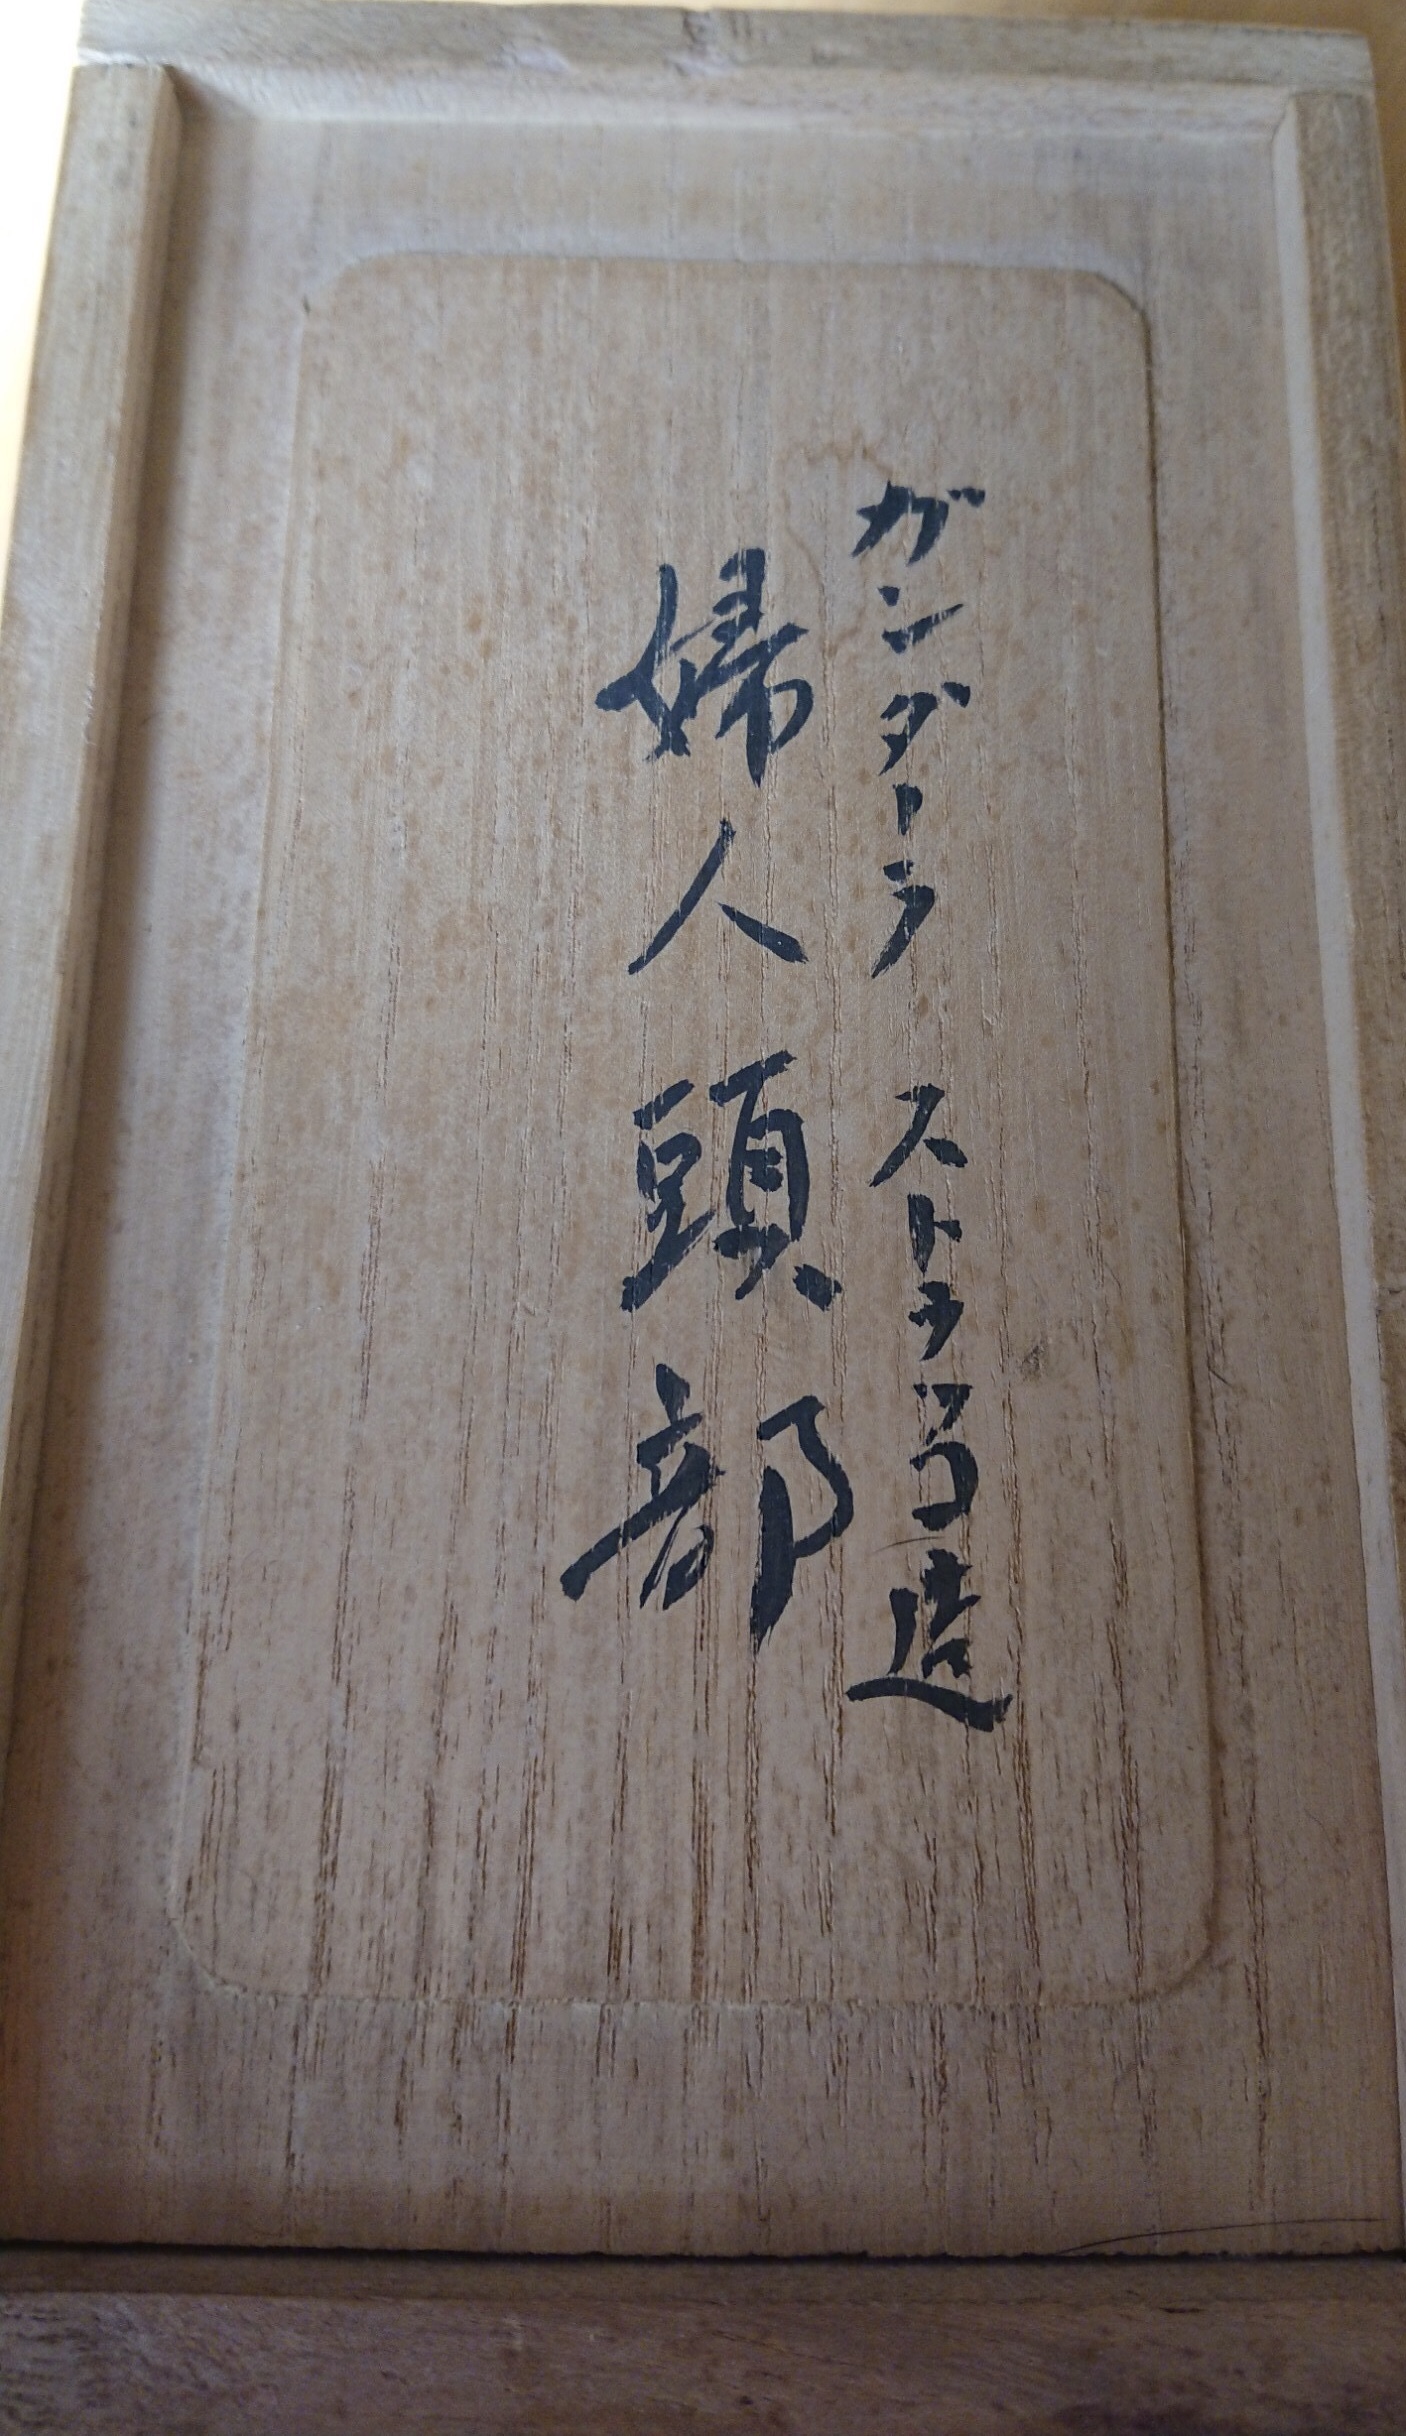 ガンダーラ ストゥッコ造
婦人頭部